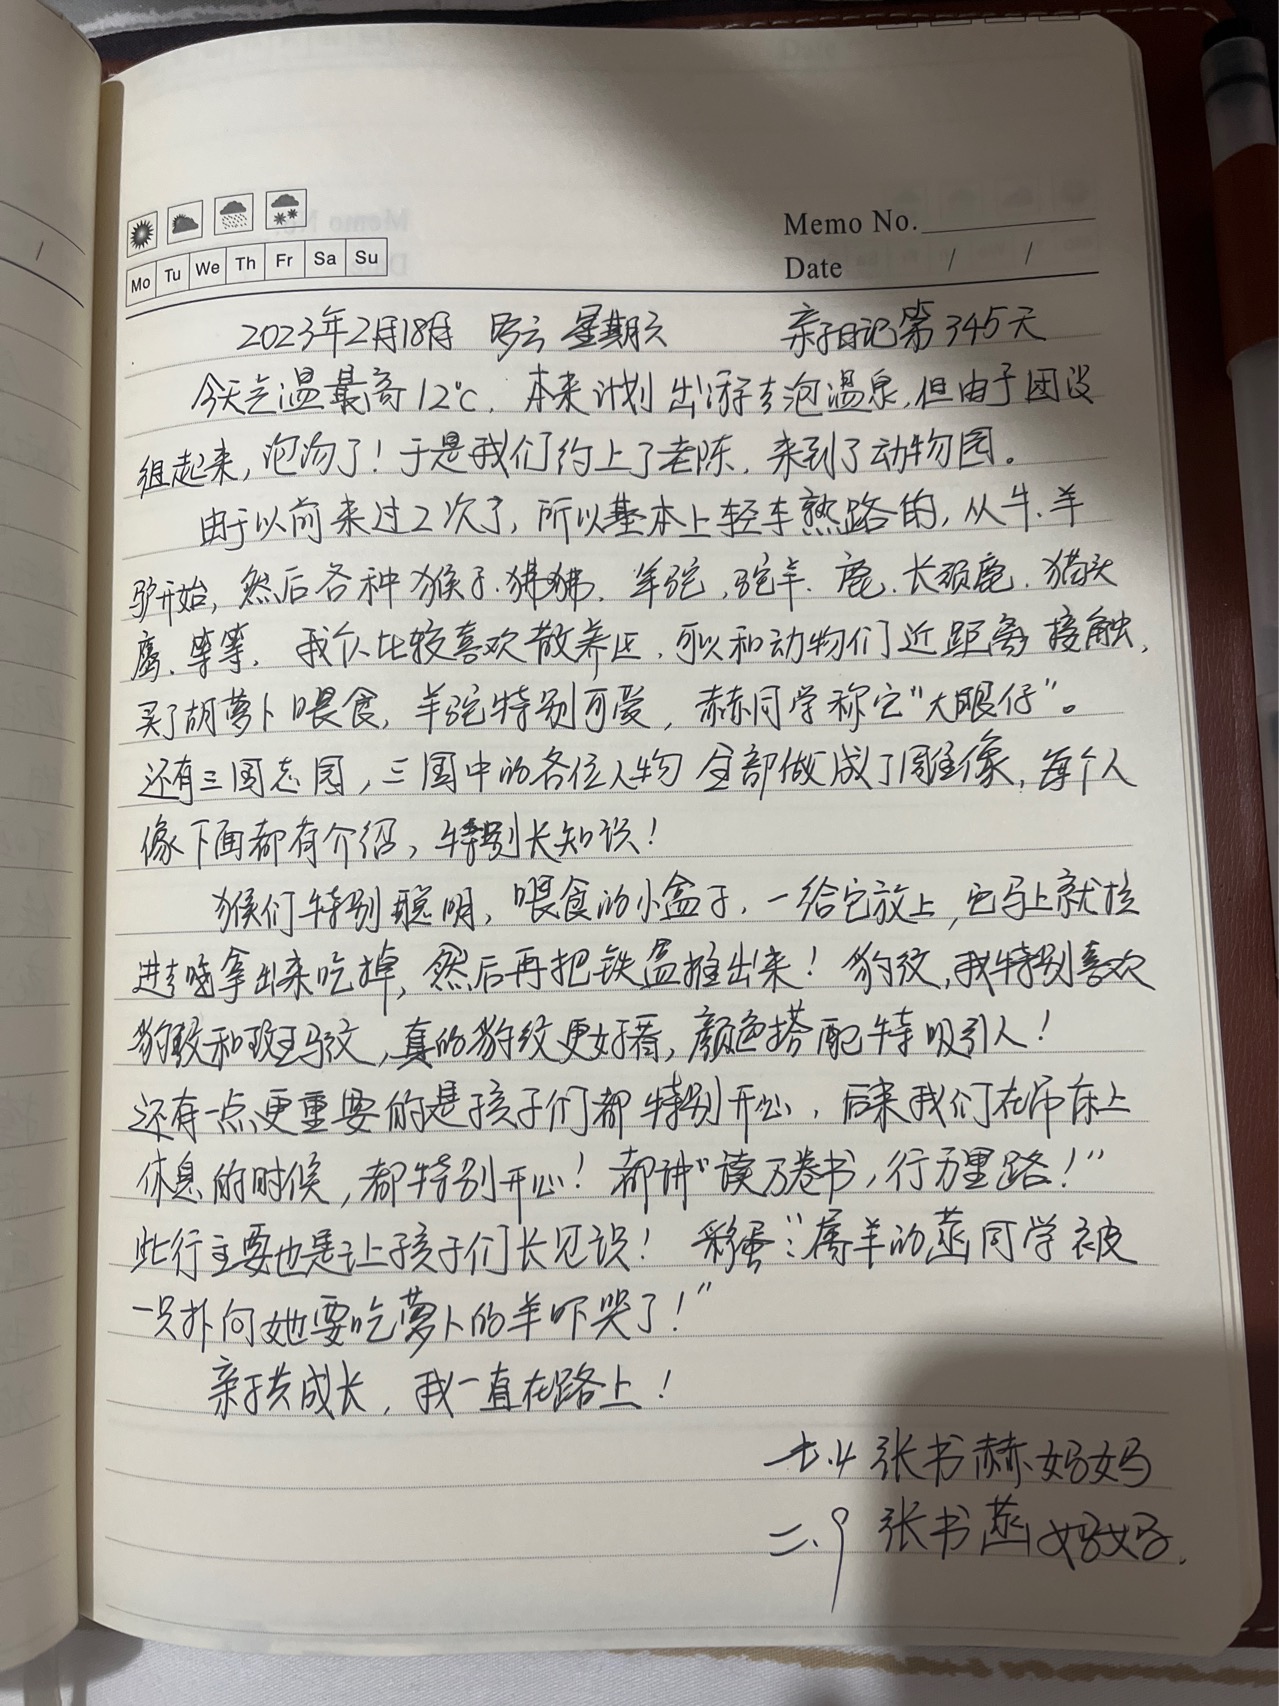 Memo No.
Mo Tu We Th Fr Sa Su
Date / /
2023年2月18日 多云 星期六 亲子日记第345天
今天气温最高12℃，本来计划出游去泡温泉，但由于团没
组起来，泡汤了！于是我们约上了老陈，来到了动物园。
由于以前来过2次了，所以基本上轻车熟路的，从牛、羊
驴开始，然后各种猴子、狒狒、羊驼、鸵鸟、鹿、长颈鹿、猫头
鹰、等等，我个人比较喜欢散养区，可以和动物们近距离接触，
买了胡萝卜喂食，羊驼特别可爱，赫同学称它“大眼仔”。
还有三国志园，三国中的各位人物全部做成了雕像，每个人
像下面都有介绍，特别长知识！
猴们特别聪明，喂食的小盒子，一给它放上，它马上就拉
进去 拿出来吃掉，然后再把铁盒推出来！豹纹，我特别喜欢
豹纹和斑马纹，真的豹纹更好看，颜色搭配特吸引人！
还有一点更重要的是孩子们都特别开心，后来我们在吊床上
休息的时候，都特别开心！都讲“读万卷书，行万里路！”
此行主要也是让孩子们长见识！彩蛋：“属羊的菡同学被
一只扑向她要吃萝卜的羊吓哭了！”
亲子共成长，我一直在路上！
七.4 张书赫妈妈
二.9 张书菡妈妈.